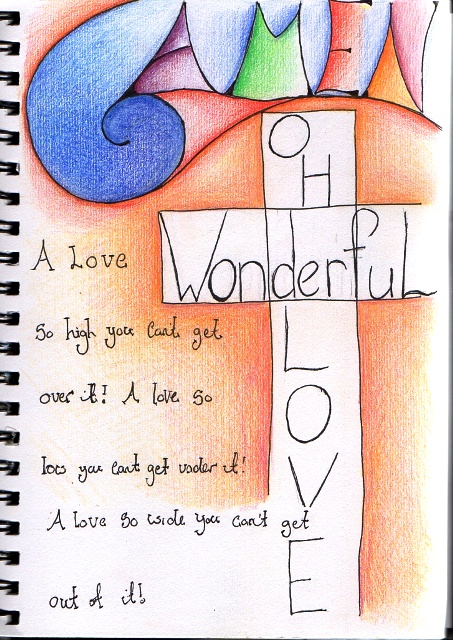 AMEN
O
H
Wonderful
L
O
V
E
A Love
So high you Can't get
over it! A love So
low you cant get under it!
A love So wide you can't get
out of it!